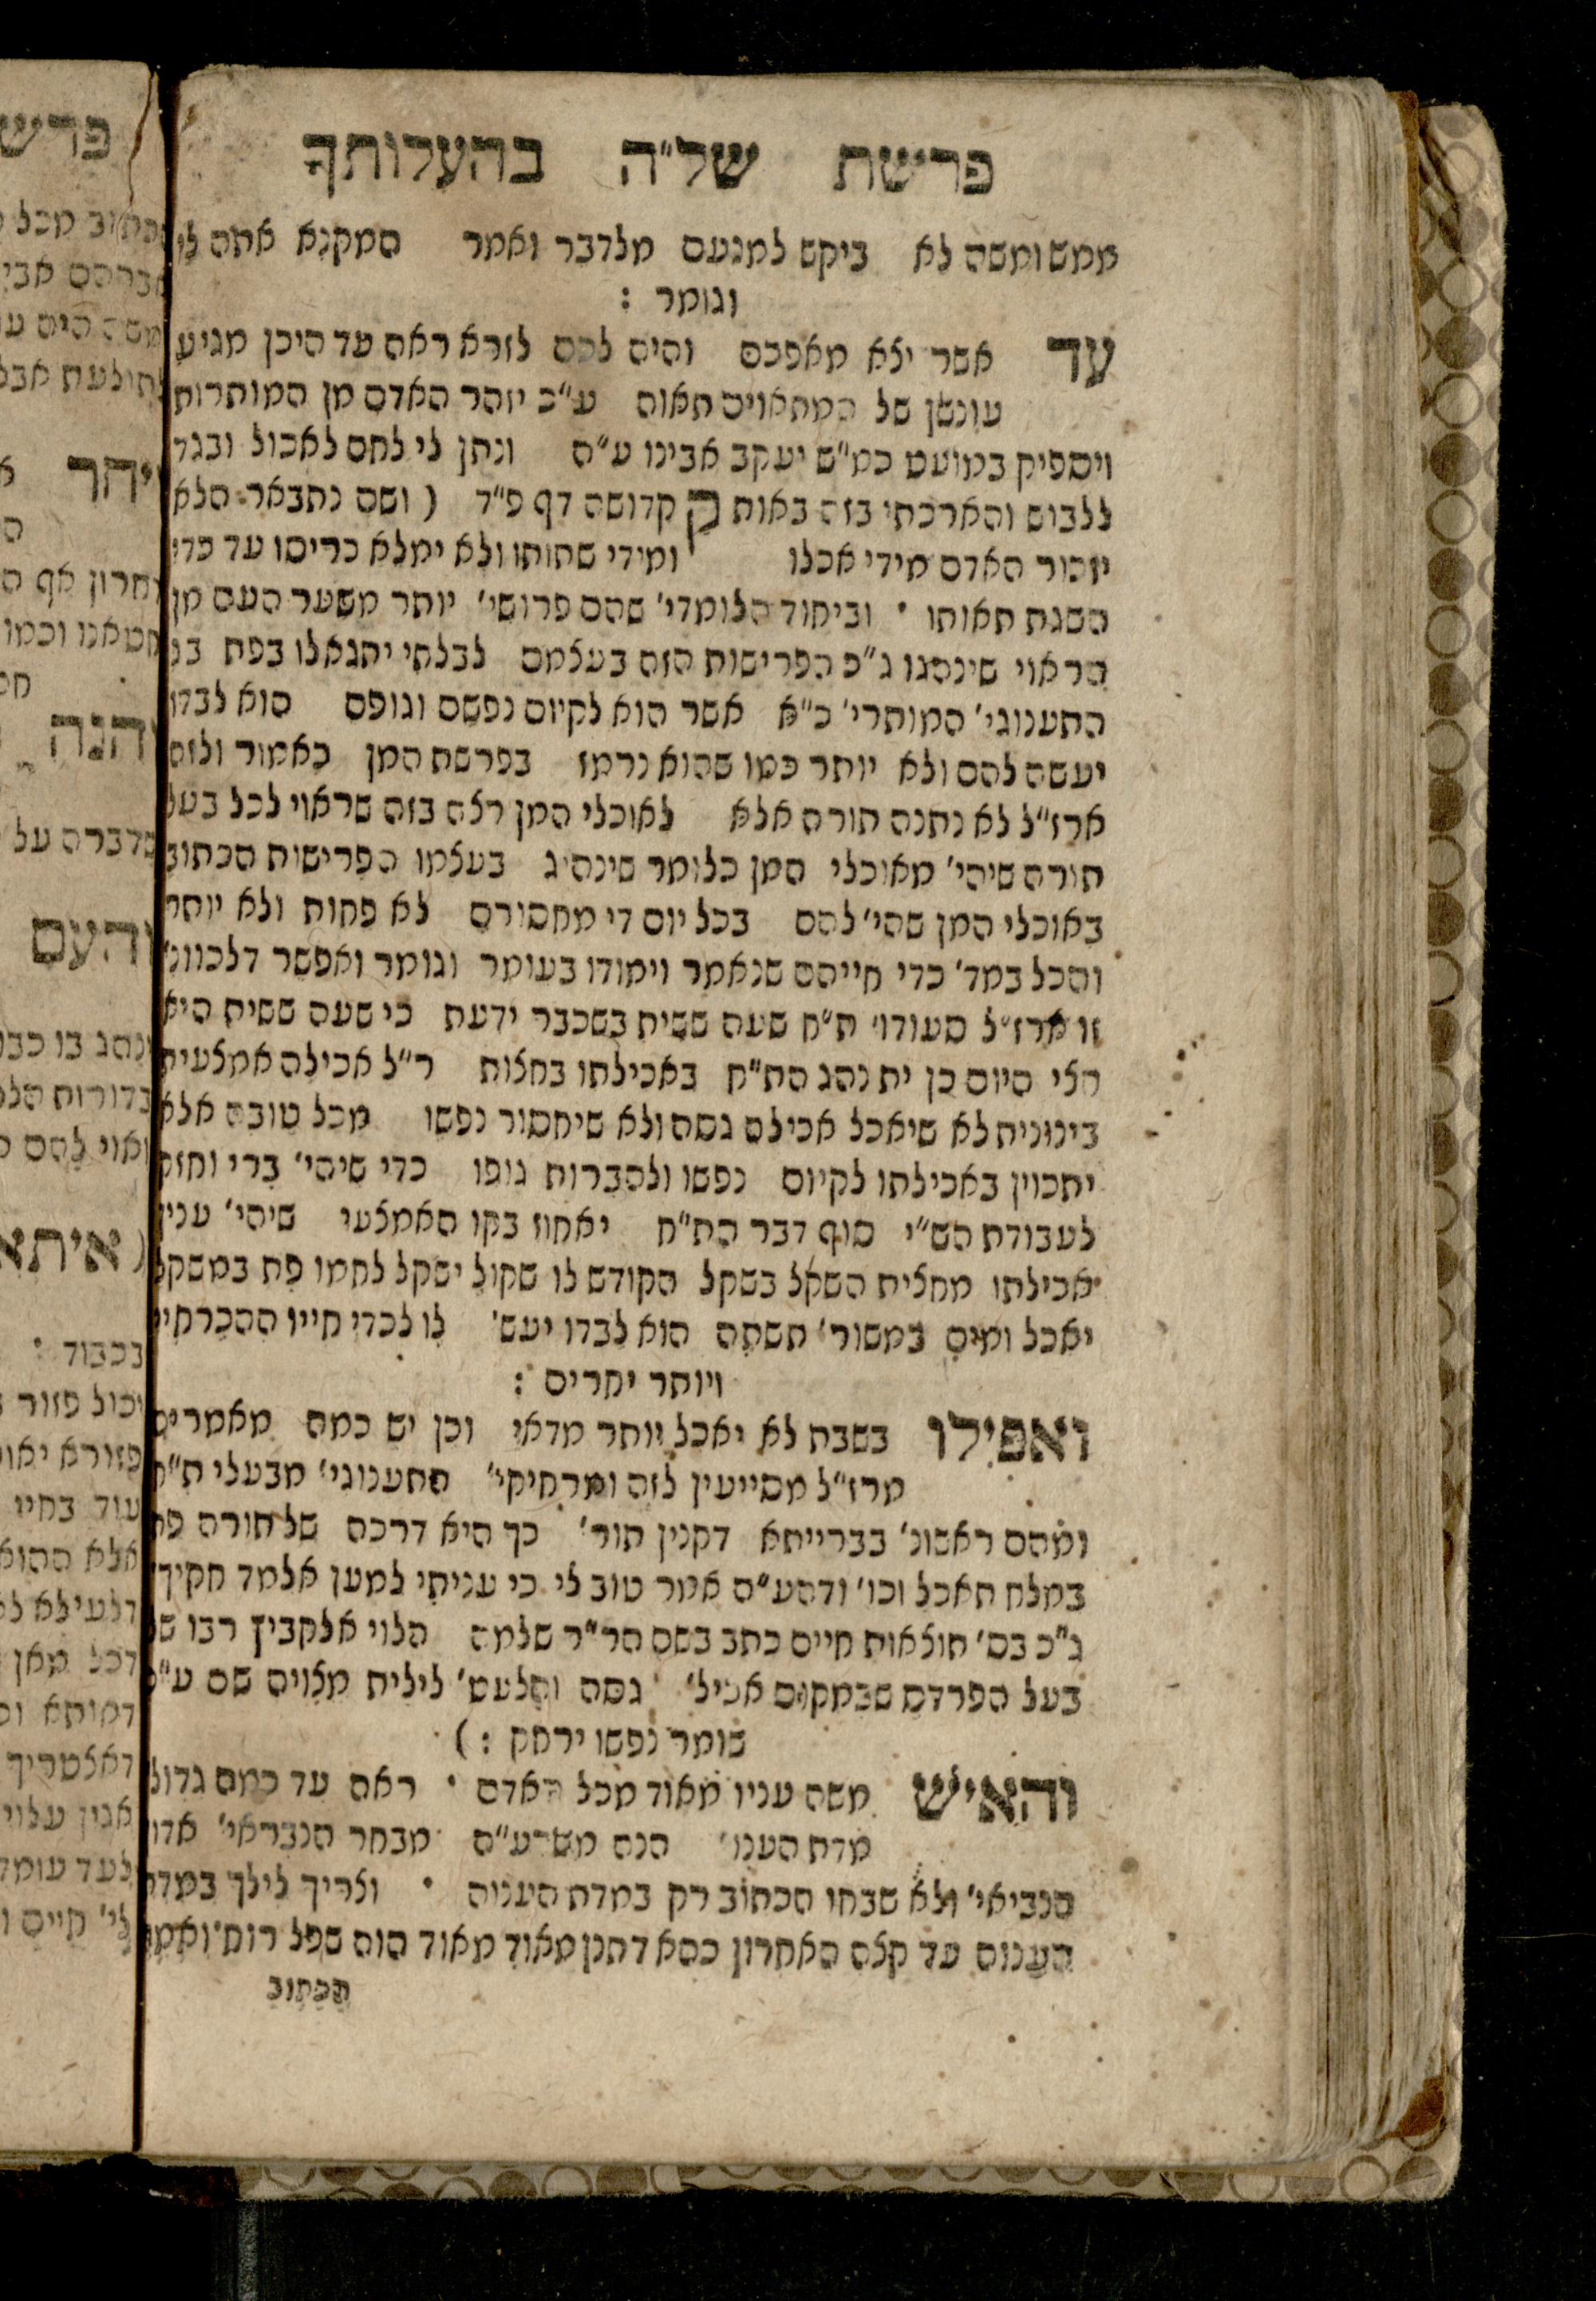 פרשת של״ה בהעלותך
ממש ומשה לא ביקש למנעם מלדבר ואמר המקנא אתה לי
וגומר :
עד אשר יצא מאפכם והיה לכם לזרא ראה עד היכן מגיע
עונשן של המתאוים תאוה ע״כ יזהר האדם מן המותרות
ויספיק במועט כמ״ש יעקב אבינו ע״ה ונתן לי לחם לאכול ובגד
ללבוש והארכתי בזה באות ק קדושה דף פ״ד ( ושם נתבאר שלא
יזהור האדם מידי אכלו ומידי שתותו ולא ימלא כריסו עד כדי
השגת תאותו • וביחוד הלומדי׳ שהם פרושי׳ יותר משער העם מן
הראוי שינהגו ג״כ הפרישות הזה בעצמם לבלתי יתגאלו בפת בג
התענוגי׳ המותרי׳ כ״א אשר הוא לקיום נפשם וגופם הוא לבדו
יעשה להם ולא יותר כמו שהוא נרמז בפרשת המן כאמור ולזה
ארז״ל לא נתנה תורה אלא לאוכלי המן רצה בזה שראוי לכל בעל
תורה שיהי׳ מאוכלי המן כלומר שינהיג בעצמו הפרישות הכתוב
באוכלי המן שהי׳ להם בכל יום די מחסורם לא פחות ולא יותר
והכל במד׳ כדי חייהם שנאמר וימודו בעומר וגומר ואפשר דלכוונ׳
זו ארז״ל סעודו׳ ת״ח שעה ששית בשכבר ידעת כי שעה ששית היא
חצי היום כן יתנהג הת״ח באכילתו בחצות ר״ל אכילה אמצעית
בינונית לא שיאכל אכילה גסה ולא שיחסור נפשו מכל טובה אלא
יתכוין באכילתו לקיום נפשו ולהברות גופו כדי שיהי׳ ברי וחזק
לעבודת הש״י סוף דבר הת״ח יאחוז בקו האמצעי שיהי׳ ענין
אכילתו מחצית השקל בשקל הקודש לו שקול ישקל לחמו פת במשקל
יאכל ומים במשור׳ תשתה הוא לבדו יעש׳ לו לכדי חייו ההכרחיי
ויותר יחרים :
ואפילו בשבת לא יאכל יותר מדאי וכן יש כמה מאמרים
מרז״ל מסייעין לזה ומרחיקי׳ התענוגי׳ מבעלי ת״ח
ומהם ראשונ׳ בברייתא דקנין תור׳ כך היא דרכה של תורה פת
במלח תאכל וכו׳ ודהע״ה אמר טוב לי כי עניתי למען אלמד חקיך
ג״כ בס׳ תוצאות חיים כתב בשם הר״ר שלמה הלוי אלקביץ רבו של
בעל הפרדס שבמקום אכיל׳ גסה והלעט׳ לילית מצוים שם ע״כ
שומר נפשו ירחק : )
והאיש משה עניו מאוד מכל האדם • ראה עד כמה גדול
מדת הענו׳ הנה משרע״ה מבחר הנבראי׳ אדון
הנביאי׳ ולא שבחו הכתוב רק במדת העניוה • וצריך לילך במדת
הענוה עד קצה האחרון כהא דתנן מאוד מאוד הוה שפל רוח ואמר
הכתוב